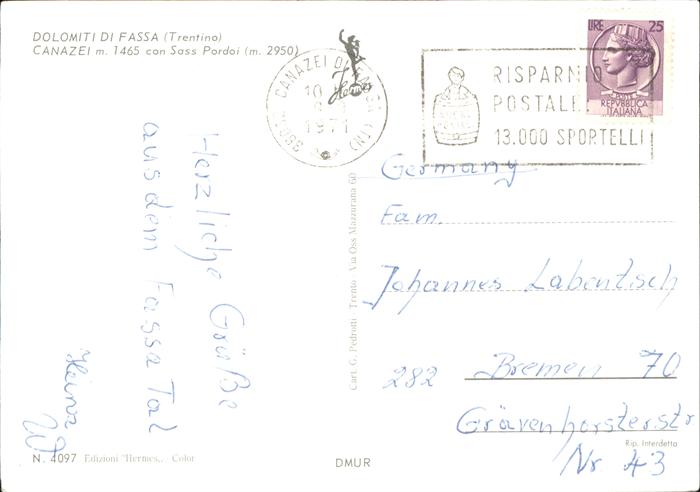 DOLOMITI DI FASSA (Trentino)
CANAZEI m. 1465 con Sass Pordoi (m. 2950)
Hermes
CANAZEI DI
(TN)
10
1971
RISPARMIO
POSTALE
13.000 SPORTELLI
LIRE 25
POSTE
REPVBBLICA
ITALIANA
Herzliche Grüße
aus dem Fassa Tal
Germany
Fam.
Johannes Labentsch
282 Bremen 70
Grävenhorsterstr
Nr 43
Cart. G. Pedrotti Trento - Via Oss Mazzurana 60
N. 4097 Edizioni "Hermes,, Color
DMUR
Rip. Interdetta